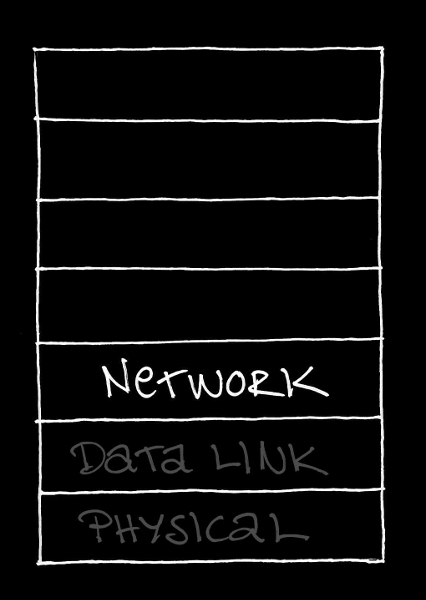 NeTWORK
DaTa LINK
PHYSICaL